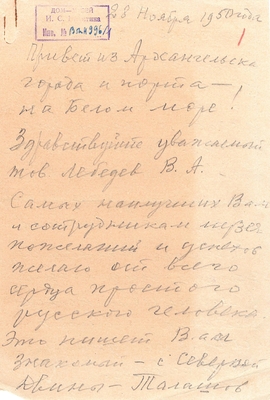 ДОМ-МУЗЕЙ
И. С.
Инв. № Вп 996/1
28 Ноября 1950 года
Привет из Архангельска
города и порта —
на Белом море!
Здравствуйте уважаемый
тов Лебедев В. А.
Самых наилучших Вам
и сотрудникам музея
пожеланий и успехов
желаю от всего
сердца простого
русского человека.
Это пишет Вам
знакомый — с Северной
Двины — Талашов